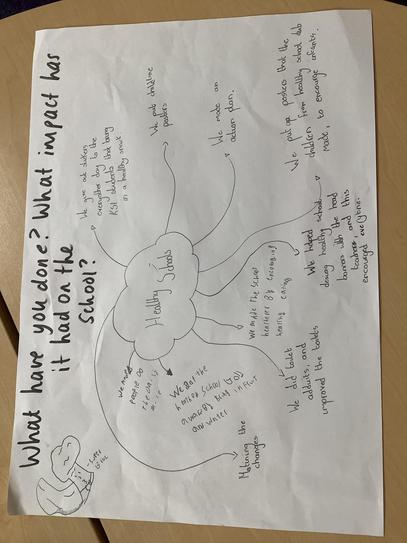 What have you done? What impact has
it had on the
School?
Healthy
Schools
We give out stickers
everyother day to the
KS1 students that bring
in a healthy snack
We put childline
posters
We made an
action plan.
We put up posters that the
children from healthy school club
made, to encourage infants.
We helped
doing healthy school
banners with the head
teacher, and this
encouraged everyone.
We made the School
healthier by
healthy eating
We did toilet
audits, and
improved the toilets
the
changes
We got the
School
and winter
We
people